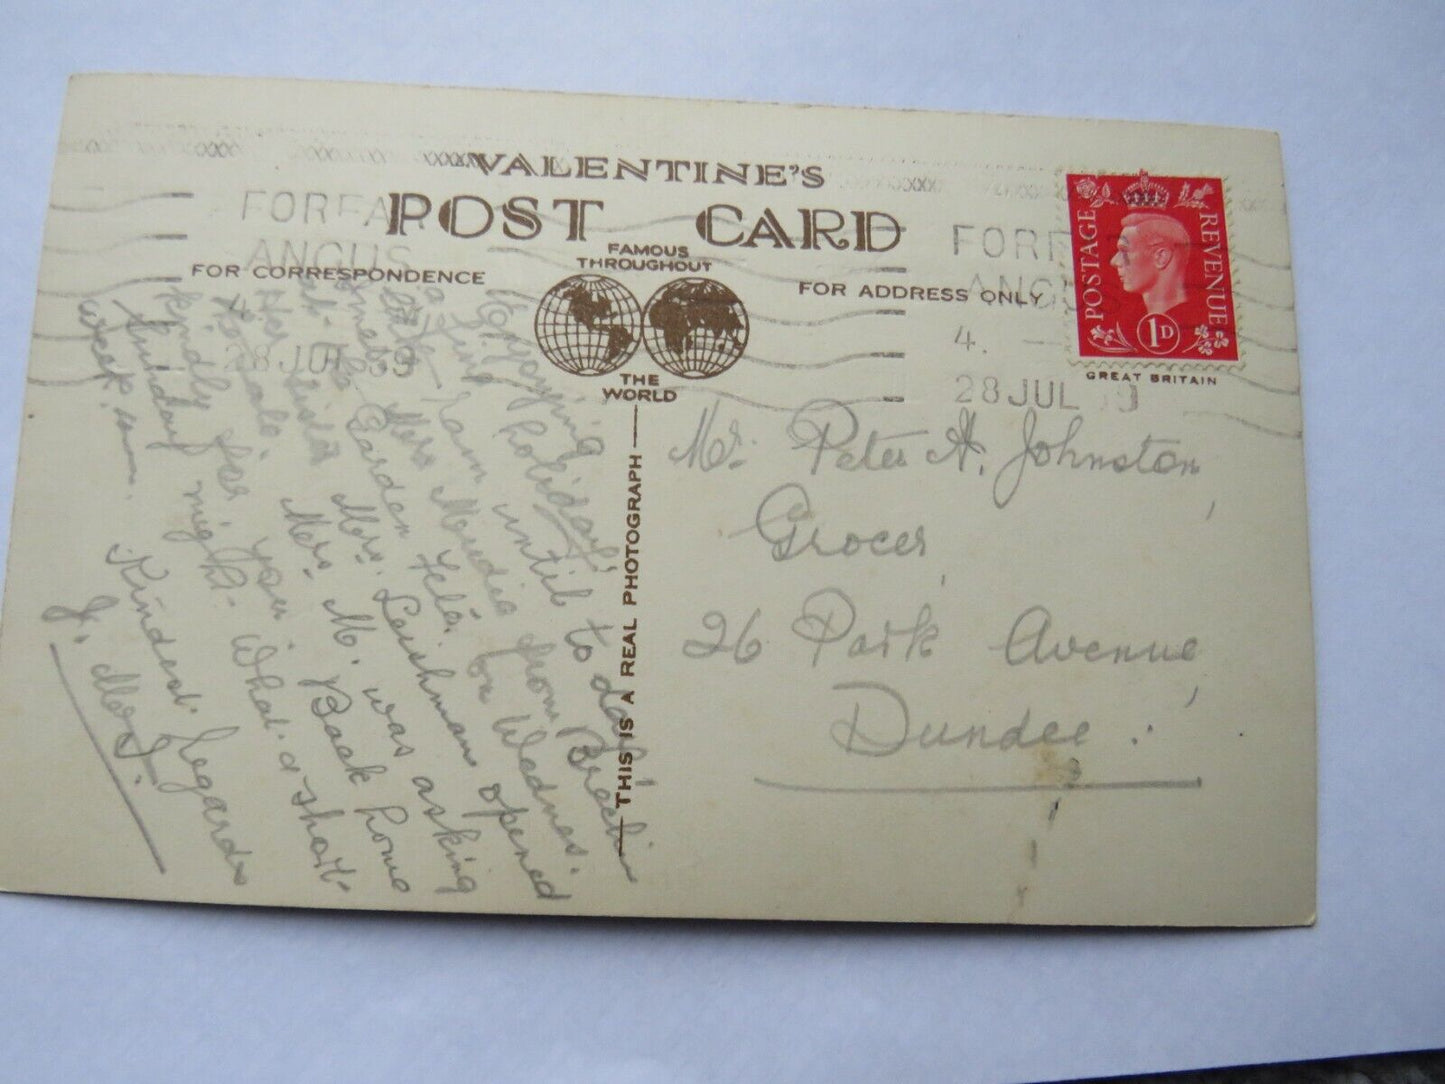 VALENTINE'S
POST CARD
FAMOUS
THROUGHOUT
THE
WORLD
FOR CORRESPONDENCE
FOR ADDRESS ONLY
THIS IS A REAL PHOTOGRAPH
FORFA
ANGUS
28 JUL 39
FORF
ANG
4.
28 JUL 9
POSTAGE
REVENUE
1D
GREAT BRITAIN
Enjoying
my holiday,
a fine warm until to day!
Mrs Mudie from Brechin
met Garden Fete on Wednes.
at the Mrs. Leishman opened
Her sister Mrs. M. was asking
kindly for you. Back home
Sunday night. What a short
week.
Kindest Regards
J.
Mr. Peter A. Johnston,
Grocer,
26 Park Avenue,
Dundee.